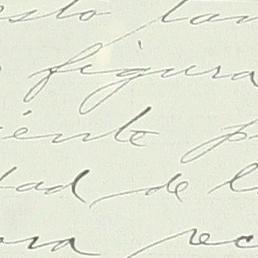 esto tan
figura
iente p
tad de l
ora rec